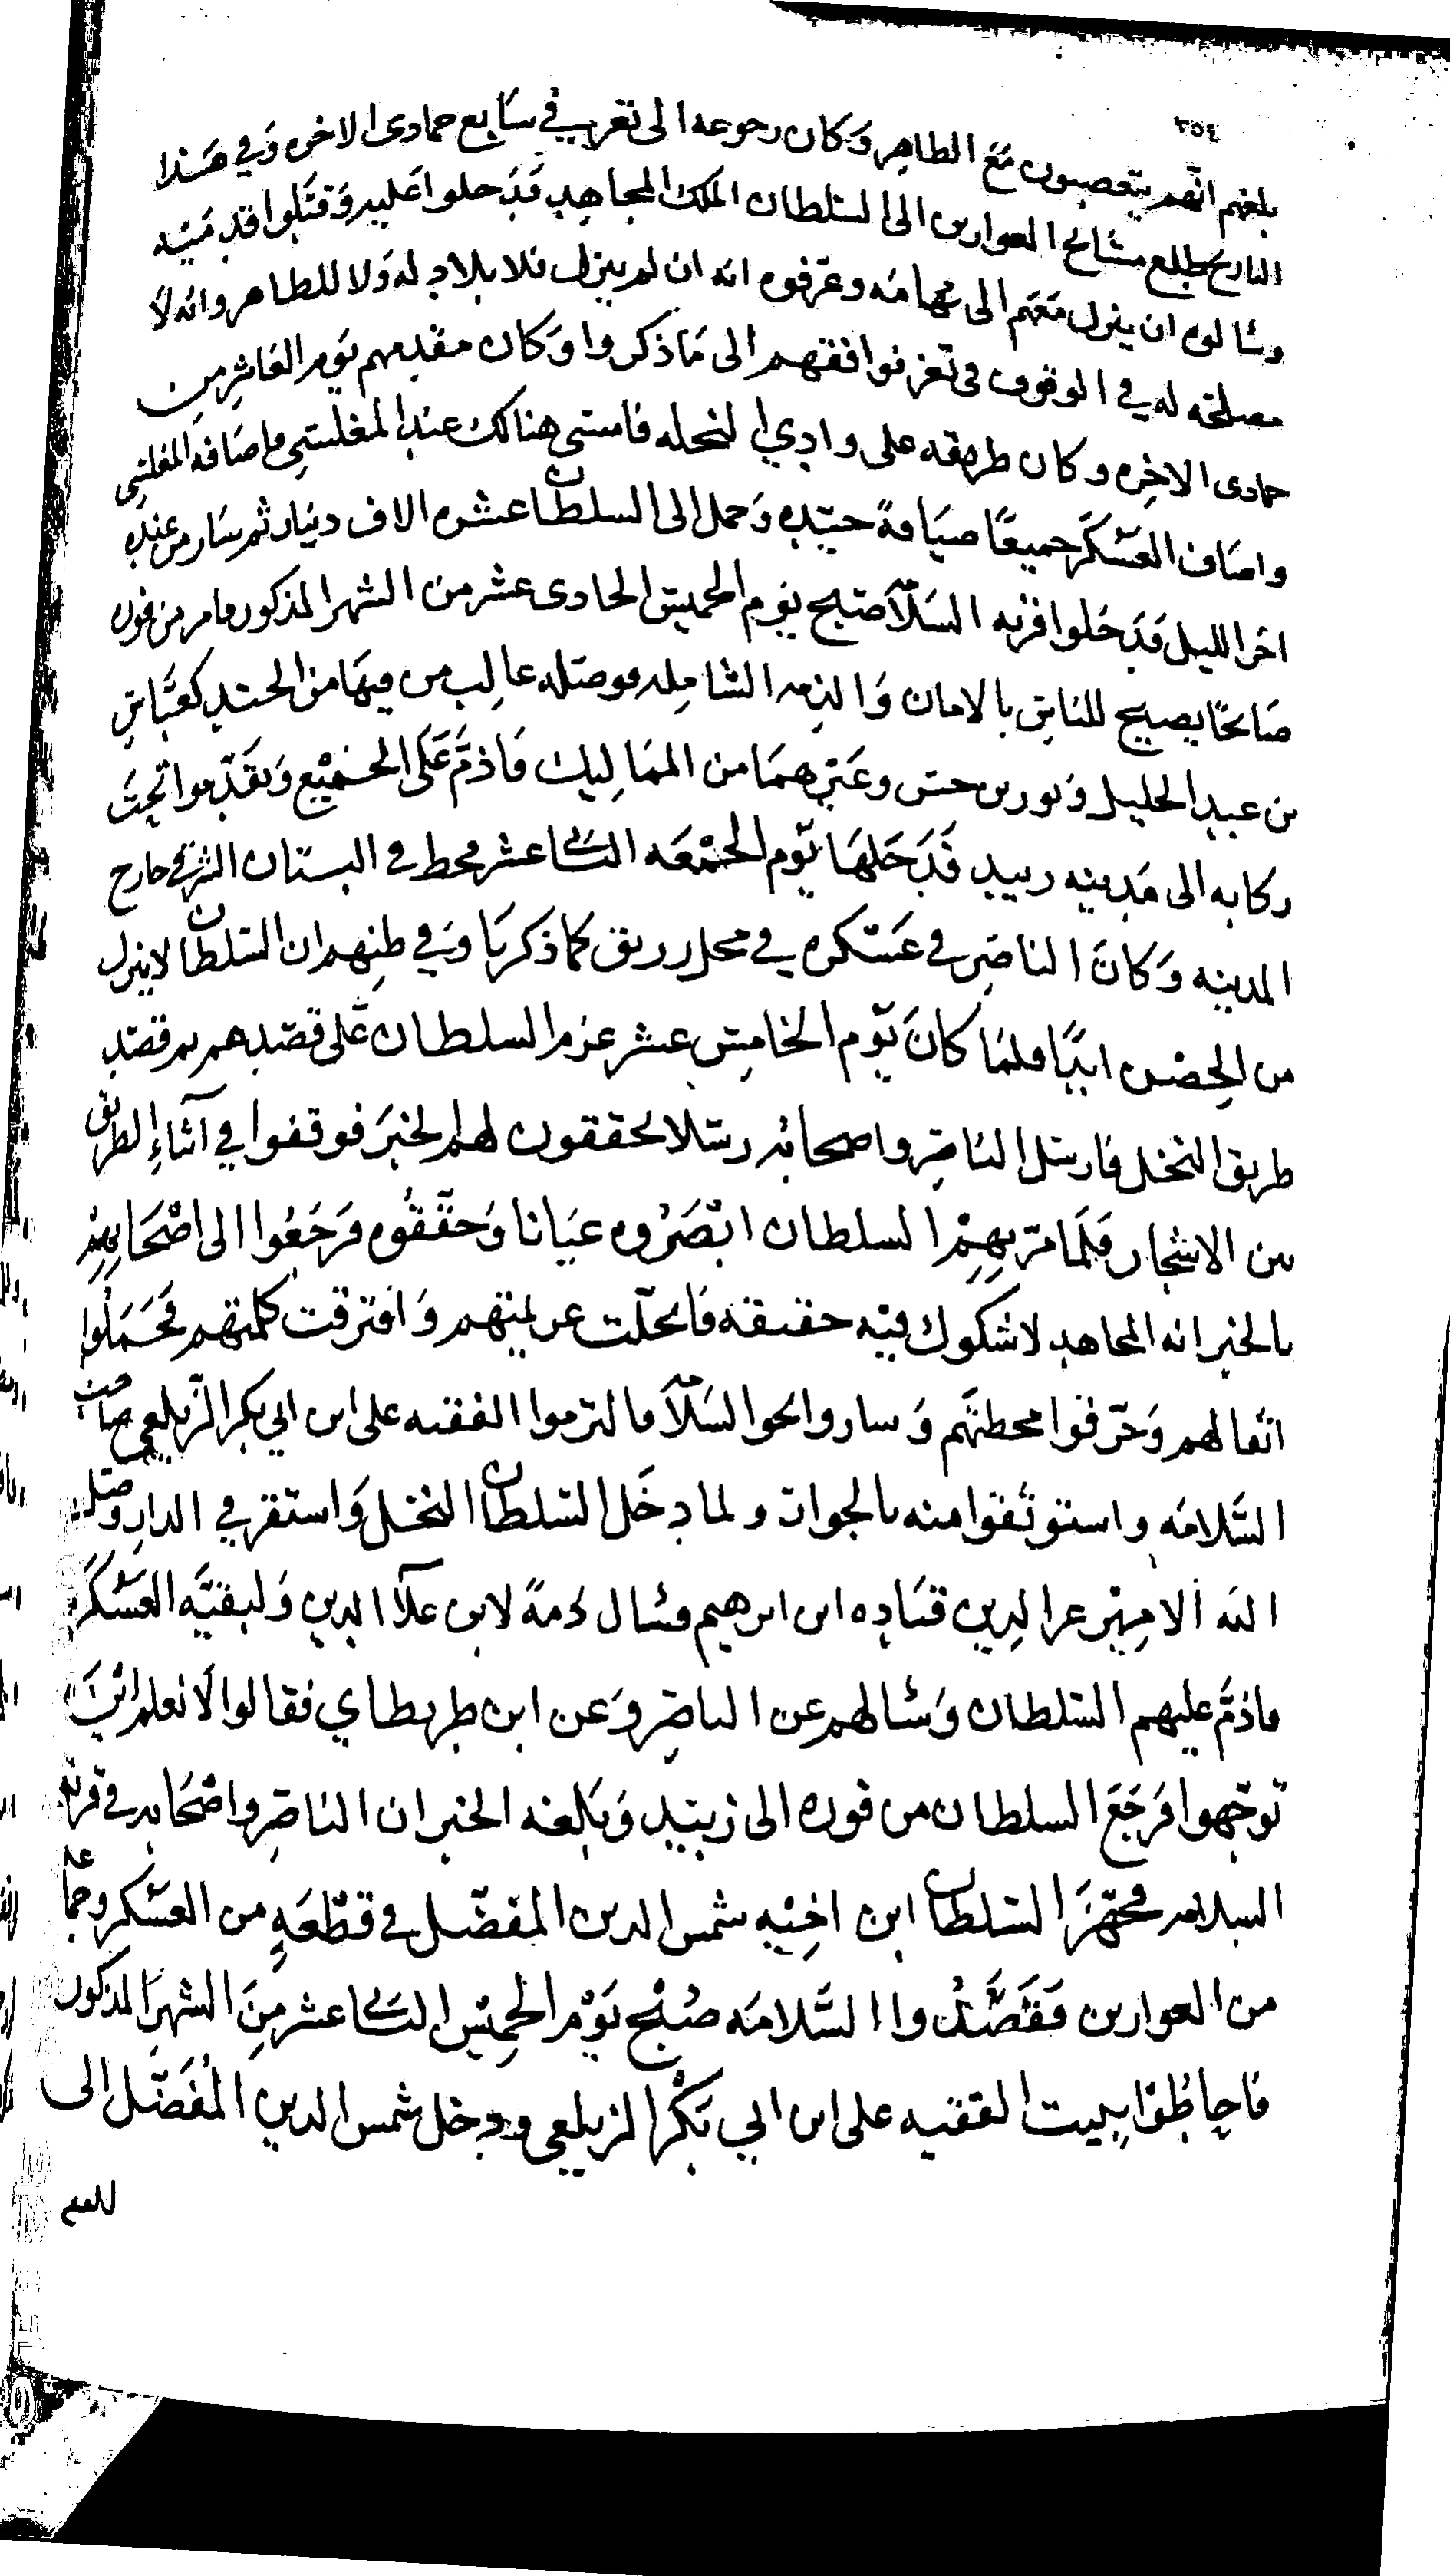 ٣٥٤
بلغهم انهم يتعصبون مع الظاهر وكان رجوعه الى تعز في سابع جمادى الاخره وفي هذا
التاريخ طلع مشايخ المعوارين الى السلطان الملك المجاهد فدخلوا عليه وقبلوا قدميه
وسالوه ان ينزل معهم الى تهامه وعرفوه انه ان لم ينزل فلا بلاد له ولا للظاهر وانه لا
مصلحه له في الوقوف في تعز فوافقهم الى ما ذكروا وكان مقدمهم يوم العاشر من
جمادى الاخره وكان طريقه على وادي النخله فامسى هنالك عند المغلسي واضافه المغلسي
واضاف العسكر جميعًا ضيافةً جيده وحمل الى السلطان عشره الاف دينار ثم سار من عنده
اخر الليل فدخلوا قريه السلامه صبح يوم الخميس الحادى عشر من الشهر المذكور وامر من فوره
صائحًا يصيح للناس بالامان والذمه الشامله فوصله غالب من فيها من الجند كعباس
بن عبد الجليل ونور بن حسن وغيرهما من المماليك فاذمّ على الجميع وتقدموا تحت
ركابه الى مدينه زبيد فدخلها يوم الجمعه الثاني عشر فحط في البستان الشرقي خارج
المدينه وكان الناصر في عسكره في محل زريق كما ذكرنا وفي ظنهم ان السلطان لا ينزل
من الحصن ابدًا فلما كان يوم الخامس عشر عزم السلطان على قصدهم ثم قصد
طريق النخل فارسل الناصر واصحابه رسلا يحققون لهم الخبر فوقفوا في اثناء الطريق
بين الاشجار فلما مر بهم السلطان ابصروه عيانا وحققوه فرجعوا الى اصحابهم
بالخبر انه المجاهد لا شكوك فيه حقيقه فانحلت عزيمتهم وافترقت كلمتهم فحملوا
اثقالهم وحرقوا محطتهم وساروا نحو السلامه فالتزموا الفقيه على ابن ابي بكر الزيلعي صاحب
السلامه واستوثقوا منه بالجوار ولما دخل السلطان النخل واستقر في الدار وصل
اليه الامير عز الدين قتاده ابن ابرهيم وسال ذمةً لابن علآ الدين ولبقيه العسكر
فاذمّ عليهم السلطان وسالهم عن الناصر وعن ابن طرنطاي فقالوا لا نعلم اين
توجهوا فرجع السلطان من فوره الى زبيد وبلغه الخبر ان الناصر واصحابه في قريه
السلامه فجهز السلطان ابن اخيه شمس الدين المفضل في قطعهٍ من العسكر وجماعه
من العوارين فقصدوا السلامه صبح يوم الخميس الثاني عشر من الشهر المذكور
فاحاطوا ببيت الفقيه على ابن ابي بكر الزيلعي ودخل شمس الدين المفضل الى